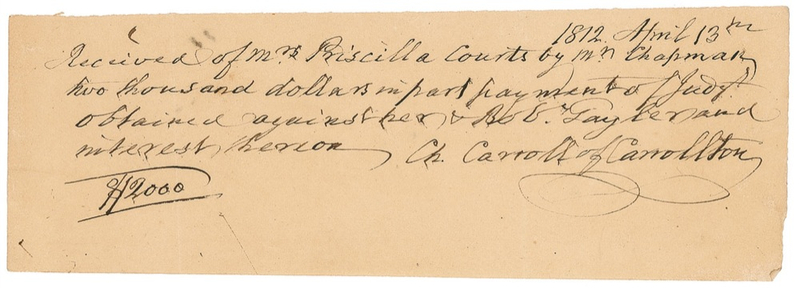 1812. April 13th
Received of Mrs Priscilla Courts by Mr Chapman
two thousand dollars in part payment of Judgt
obtained against her & Robt. Tayler and
interest thereon Ch. Carroll of Carrollton
$2000